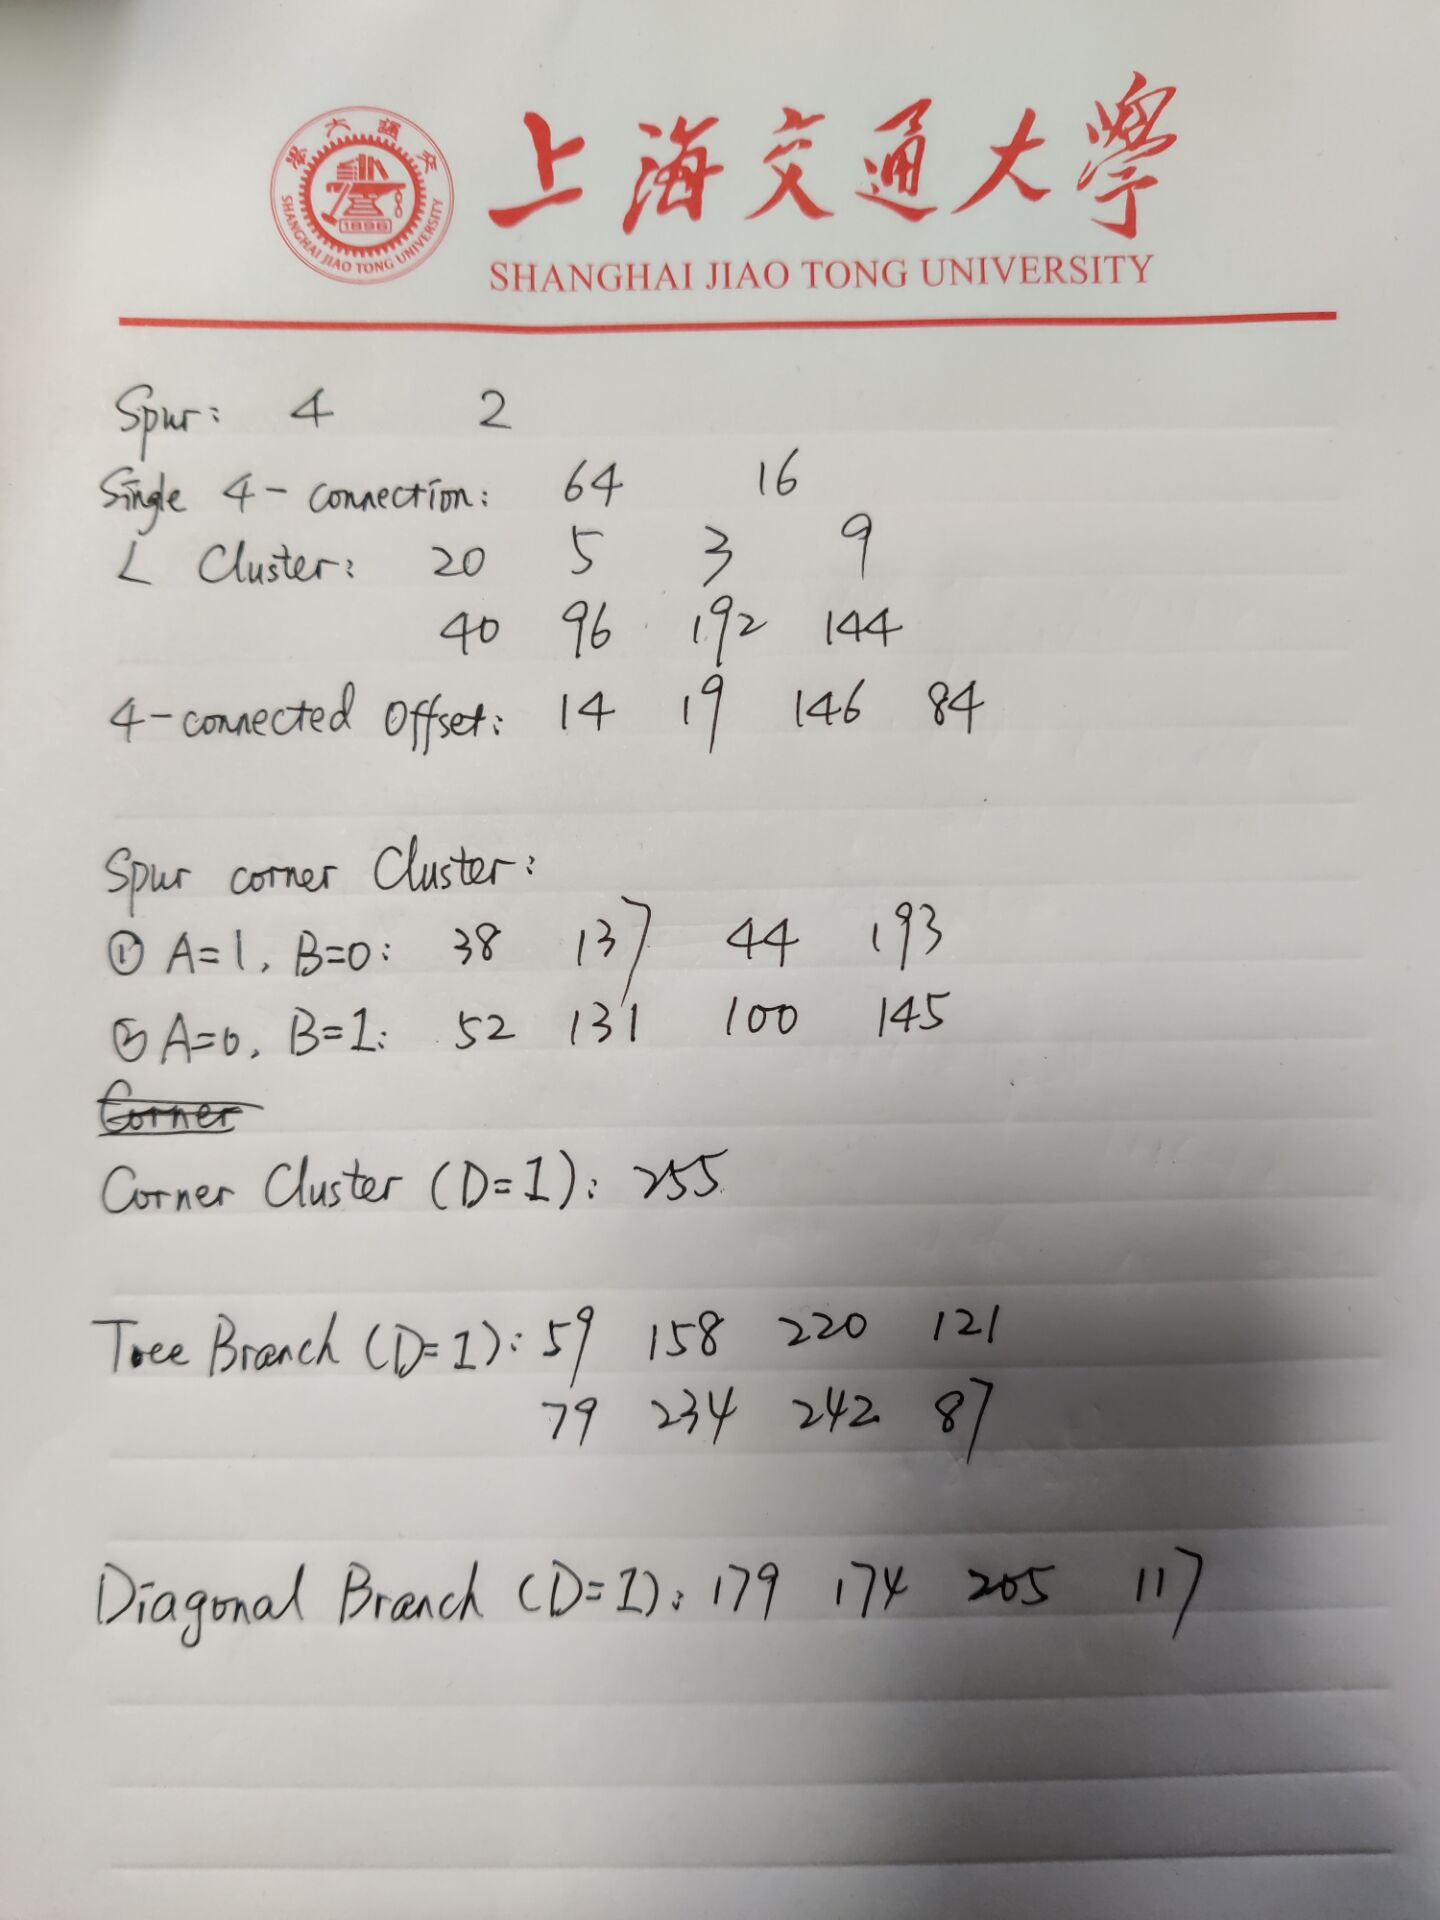 上海交通大學
SHANGHAI JIAO TONG UNIVERSITY
1896
SHANGHAI JIAO TONG UNIVERSITY
Spur: 4 2
Single 4-connection: 64 16
L Cluster: 20 5 3 9
40 96 192 144
4-connected Offset: 14 19 146 84
Spur corner Cluster:
① A=1, B=0: 38 137 44 193
② A=0, B=1: 52 131 100 145
Corner
Corner Cluster (D=1): 255
Tree Branch (D=1): 59 158 220 121
79 234 242 87
Diagonal Branch (D=1): 179 174 205 117